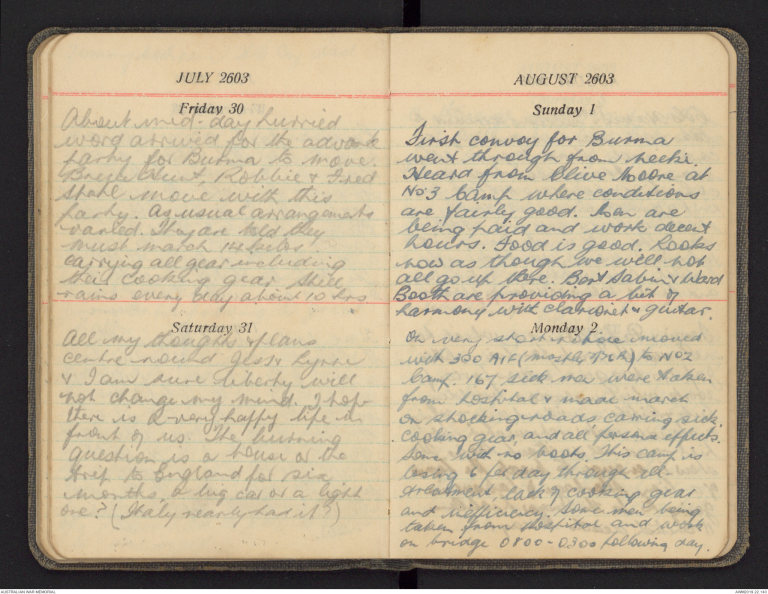 JULY 2603
Friday 30
About mid-day hurried
word arrived for the advance
party for Burma to move.
Bruce Hunt, Robbie & Fred
Stahl move with this
party. As usual arrangements
varied. They are told they
must march 14 kilos
carrying all gear including
their cooking gear. Still
rains every day about 10 hrs
Saturday 31
All my thoughts & plans
centre round Jess & Lynne
& I am sure liberty will
not change my mind. I hope
there is a very happy life in
front of us. The burning
question is a house or the
trip to England for six
months, a big car or a light
one? (Italy nearly had it?)
AUGUST 2603
Sunday 1
First convoy for Burma
went through from Neeki.
Heard from Clive Moore at
No 3 Camp where conditions
are fairly good. Men are
being paid and work decent
hours. Food is good. Looks
now as though we will not
all go up there. Bert Sabin & Ward
Booth are providing a bit of
harmony with clarionet & guitar.
Monday 2
On very short notice moved
with 300 AIF (mostly sick) to No 2
Camp. 167 sick men were taken
from hospital & made march
on shocking roads carrying sick,
cooking gear, and all personal effects.
Some with no boots. This camp is
losing 6 per day through ill-
treatment, lack of cooking gear
and inefficiency. Some men being
taken from hospital and work
on bridge 0800-0300 following day.
AUSTRALIAN WAR MEMORIAL